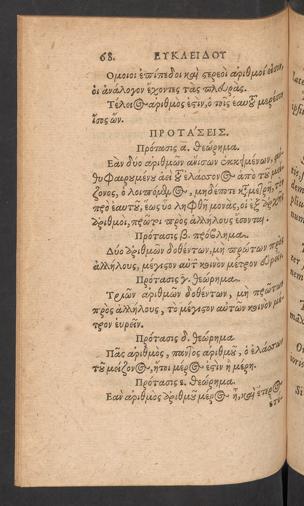 68. ΕΥΚΛΕΙΔΟΥ
Ομοιοι ἐπίπεδοι καὶ στερεοὶ ἀριθμοί εἰσιν,
οἱ ἀνάλογον ἔχοντες τὰς πλευράς.
Τέλειος ἀριθμός ἐστιν, ὁ τοῖς ἑαυτοῦ μέρεσιν
ἴσος ὤν.
ΠΡΟΤΑΣΕΙΣ.
Πρότασις α. θεώρημα.
Εὰν δύο ἀριθμῶν ἀνίσων ἐκκειμένων, ἀν-
θυφαιρουμένου ἀεὶ τοῦ ἐλάσσονος ἀπὸ τοῦ μεί-
ζονος, ὁ λειπόμενος, μηδέποτε καταμετρῇ τὸν
πρὸ ἑαυτοῦ, ἕως οὗ ληφθῇ μονὰς, οἱ ἐξ ἀρχῆς
ἀριθμοὶ, πρῶτοι πρὸς ἀλλήλους ἔσονται.
Πρότασις β. πρόβλημα.
Δύο ἀριθμῶν δοθέντων, μὴ πρώτων πρὸς
ἀλλήλους, μέγιστον αὐτῶν κοινὸν μέτρον εὑρεῖν.
Πρότασις γ. θεώρημα.
Τριῶν ἀριθμῶν δοθέντων, μὴ πρώτων
πρὸς ἀλλήλους, τὸ μέγιστον αὐτῶν κοινὸν μέ-
τρον εὑρεῖν.
Πρότασις δ. θεώρημα.
Πᾶς ἀριθμὸς, παντὸς ἀριθμοῦ, ὁ ἐλάσσων
τοῦ μείζονος, ἤτοι μέρος ἐστὶν ἢ μέρη.
Πρότασις ε. θεώρημα.
Εὰν ἀριθμὸς ἀριθμοῦ μέρος ᾖ, καὶ ἕτερος
ἑτέ-